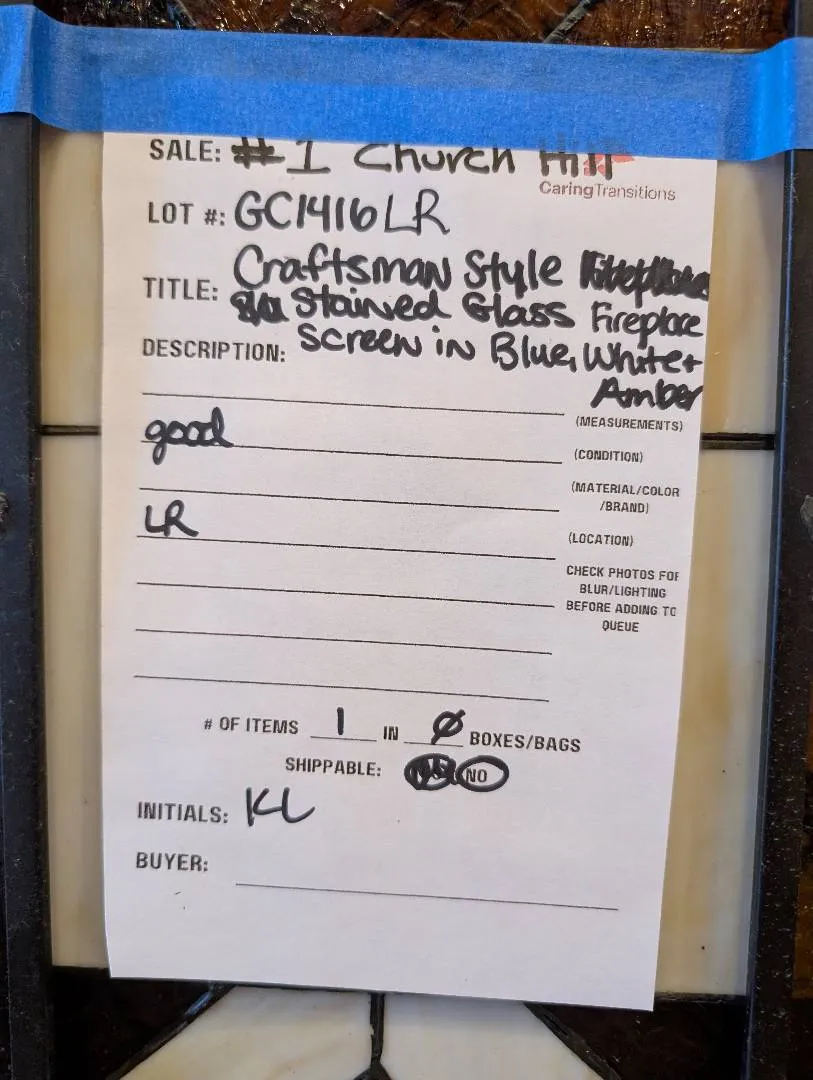 SALE: #1 Church Hill
CaringTransitions
LOT #: GC1416LR
TITLE: Craftsman Style
Stained Glass Fireplace
DESCRIPTION: Screen in Blue, White +
Amber
(MEASUREMENTS)
good
(CONDITION)
(MATERIAL/COLOR
/BRAND)
LR
(LOCATION)
CHECK PHOTOS FOR
BLUR/LIGHTING
BEFORE ADDING TO
QUEUE
# OF ITEMS 1 IN Ø BOXES/BAGS
SHIPPABLE: NO
INITIALS: KL
BUYER: